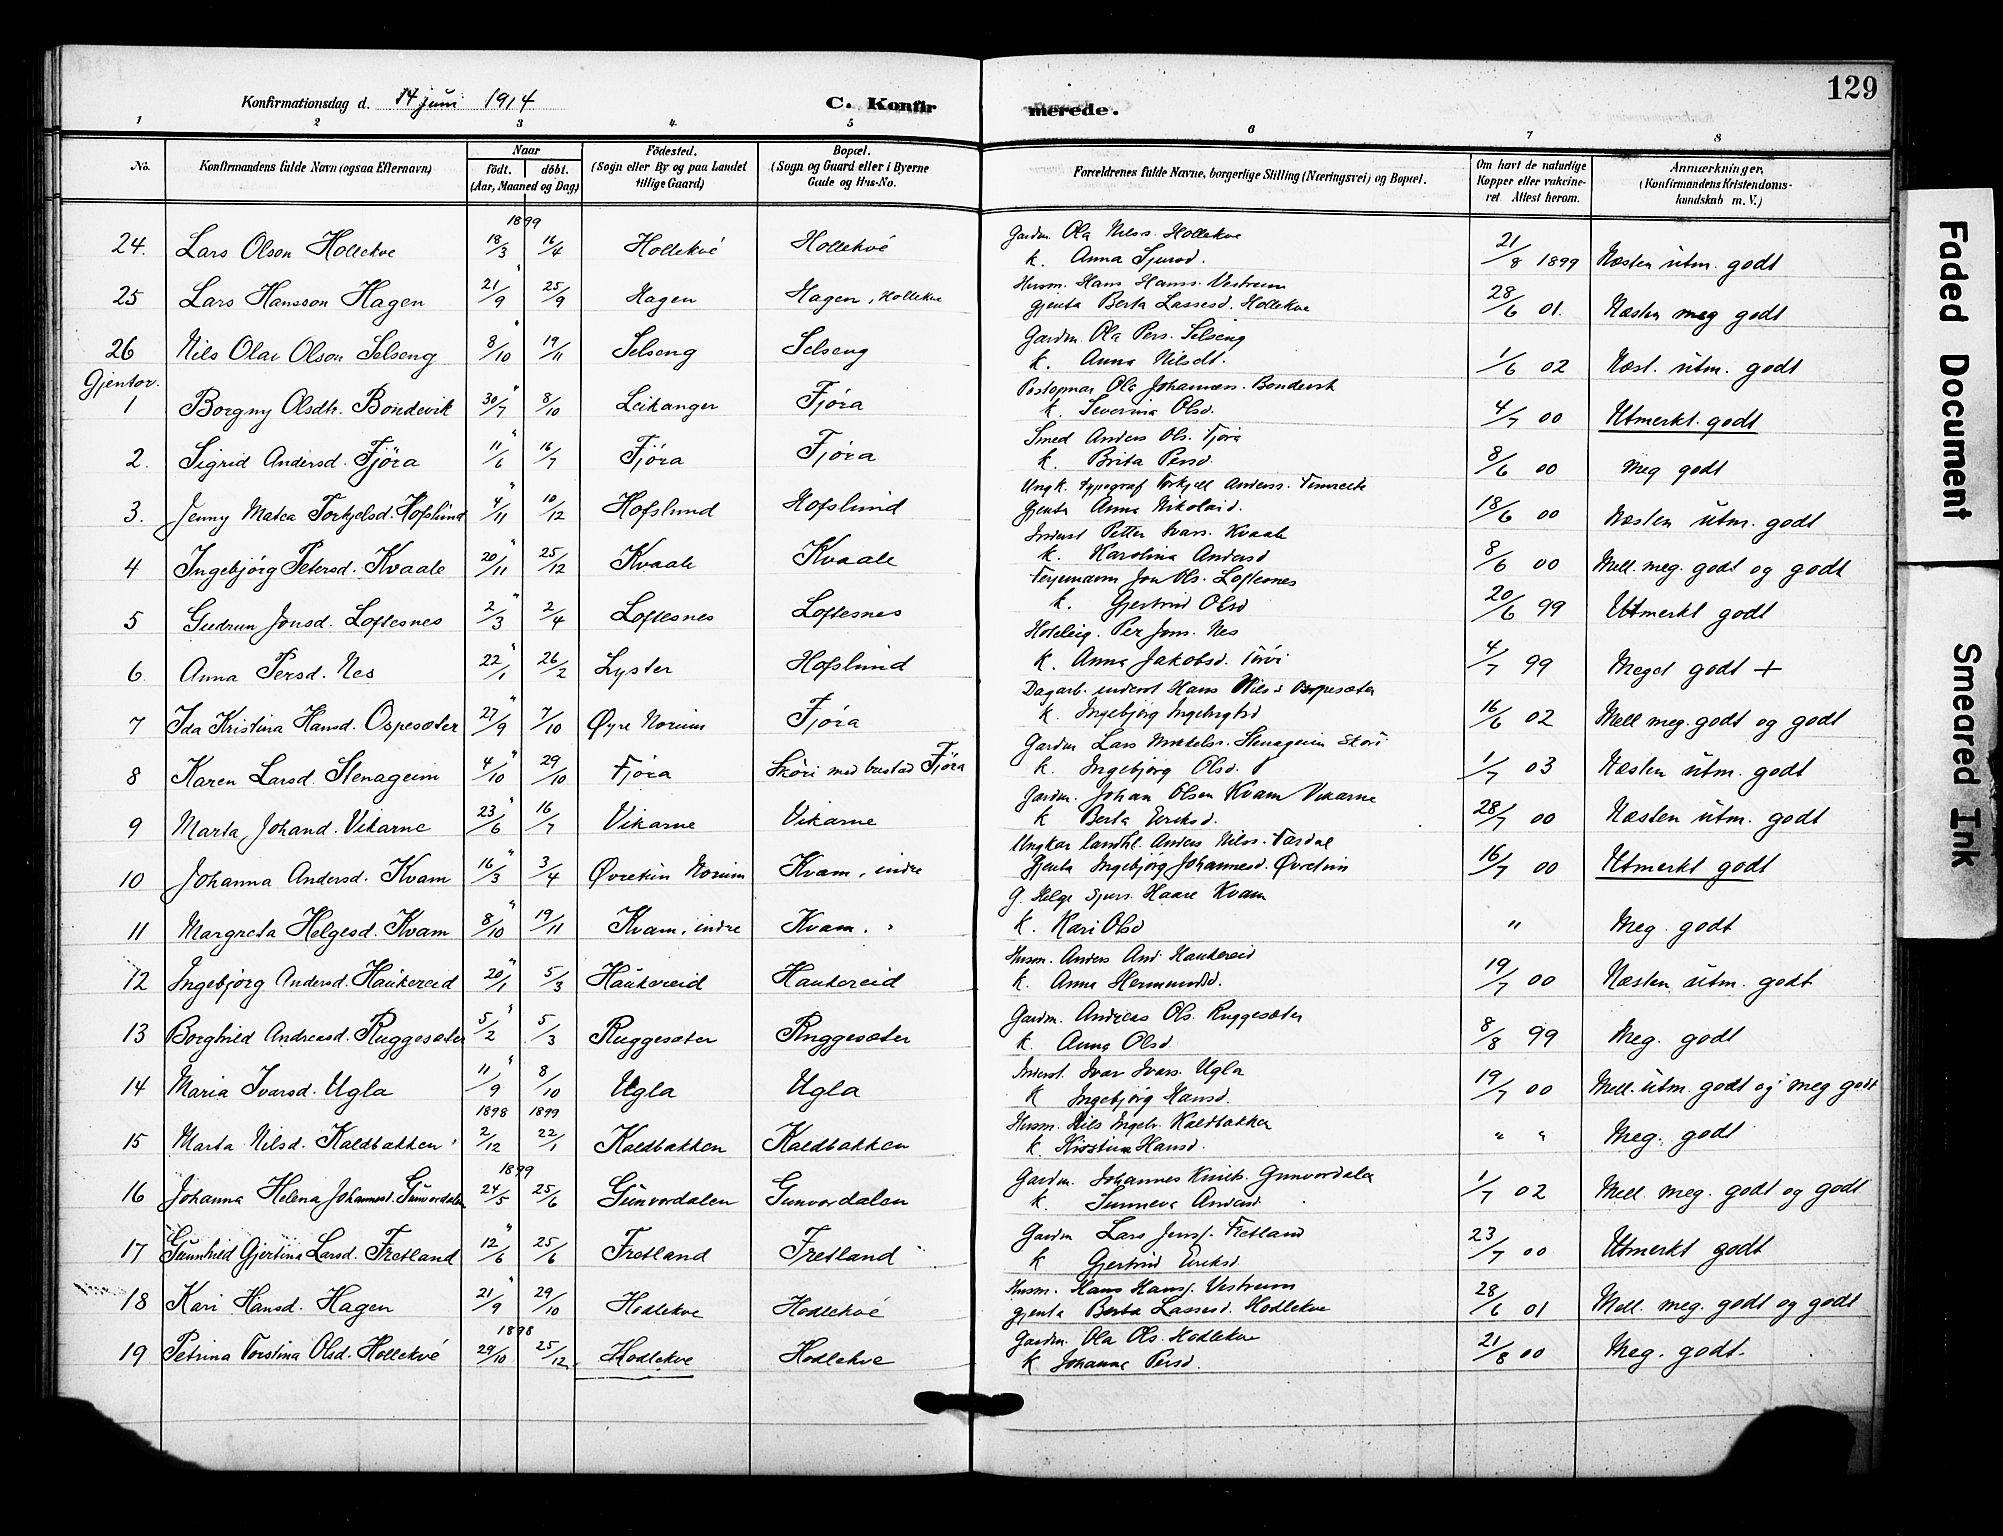 129
Konfirmationsdag d. 14 juni 1914
C. Konfirmerede.
1 2 3 4 5 6 7 8
No. Konfirmandens fulde Navn (ogsaa Efternavn) Naar født. døbt. (Aar, Maaned og Dag) Fødested. (Sogn eller By og paa Landet tillige Gaard) Bopæl. (Sogn og Gaard eller i Byerne Gade og Hus-No. Forældrenes fulde Navne, borgerlige Stilling (Næringsvei) og Bopæl. Om havt de naturlige Kopper eller vakcineret Attest herom. Anmærkninger, (Konfirmandens Kristendomskundskab m. V.)
1899
24. Lars Olson Hollekve 18/3 16/4 Hollekvé Hollekvé Gardm. Ola Nilss. Hollekve
k. Anna Sjursd. 21/8 1899 Næsten utm. godt
25 Lars Hansson Hagen 21/9 25/9 Hagen Hagen, Hollekve Husm. Hans Hanss. Vestrum
gjenta Berta Lassesd. Hollekve 28/6 01. Næsten meg godt
26 Nils Olai Olson Selseng 8/10 19/11 Selseng Selseng Gardm. Ola Pers. Selseng
k. Anna Nilsdt. 1/6 02 Næst. utm. godt
Gjentor.
1 Borgny Olsdtr. Bondevik 30/7 8/10 Leikanger Fjøra Postopnar Ola Johanness. Bondevik
k. Severina Olsd. 4/7 00 Utmerkt. godt
2. Sigrid Andersd. Fjøra 11/6 16/7 Fjøra Fjøra Smed Anders Ols. Fjøra
k. Brita Persd. 8/6 00 meg godt
3. Jenny Matea Torkjelsd. Hofslund 4/11 10/12 Hofslund Hofslund Ungk. typograf Torkjell Anderss. Timreite
gjenta Anna Nikolaid. 18/6 00 Næsten utm. godt
4 Ingebjørg Petersd. Kvaale 20/11 25/12 Kvaale Kvaale Inderst Petter Ivars. Kvaale
k. Karolina Andersd 8/6 00 Mell. meg. godt og godt
5 Gudrun Jonsd. Loftesnes 2/3 2/4 Loftesnes Loftesnes Ferjemann Jon Ols. Loftesnes
k. Gjertrud Olsd 20/6 99 Utmerkt godt
6 Anna Persd. Nes 22/1 26/2 Lyster Hofslund Hoteleig. Per Jons. Nes
k. Anna Jakobsd. 4/7 99 Meget godt +
7 Ida Kristina Hansd. Ospesæter 27/9 7/10 Øyre Norum Fjøra Dagarb. inderst Hans Nils. Ospesæter
k. Ingebjørg Ingebrigtsd 16/6 02 Mell meg. godt og godt
8 Karen Larsd. Stenageim 4/10 29/10 Fjøra Skøri med bustad Fjøra Gardm Lars Mikelss. Stenageim Skøri
k. Ingebjørg Olsd. 1/7 03 Næsten utm. godt
9 Marta Johand. Vikarne 23/6 16/7 Vikarne Vikarne Gardm. Johan Olsen Kvam Vikarne
k Berta Eriksd. 28/7 00 Næsten utm. godt
10 Johanna Andersd. Kvam 16/3 3/4 Øvretun Norum Kvam, indre Ungkar landhl. Anders Nilss. Fardal
Gjenta Ingebjørg Johannesd. Øvretun 16/7 00 Utmerkt godt
11 Margreta Helgesd. Kvam 8/10 19/11 Kvam, indre Kvam. " G. Helge Sjurs. Haave Kvam
k. Kari Olsd " Meg. godt
12 Ingebjørg Andersd. Haukereid 20/1 5/3 Haukereid Haukereid Husm. Anders And. Haukereid
k. Anna Hermundsd. 19/7 00 Næsten utm. godt
13 Borghild Andreasd. Ruggesæter 5/2 5/3 Ruggesæter Ruggesæter Gardm. Andreas Ols. Ruggesæter
k. Anna Olsd 8/8 99 Meg. godt
14 Maria Ivarsd. Ugla 11/9 8/10 Ugla Ugla Inderst. Ivar Ivars. Ugla
k Ingebjørg Hansd. 19/7 00 Mell. utm. godt og meg godt
1898 1899
15 Marta Nilsd. Kaldbakken 2/12 22/1 Kaldbakken Kaldbakken Husm. Nils Ingebr. Kaldbakken
k Kristina Hansd. " " Meg. godt
1899
16 Johanna Helena Johannesd. Gunvordalen 24/5 25/6 Gunvordalen Gunvordalen Gardm. Johannes Gunvordalen
k. Sunneva Andersd 1/7 02 Mell. meg. godt og godt
17 Gunhild Gjertina Larsd. Fretland 12/6 25/6 Fretland Fretland Gardm Lars Jens. Fretland
k Gjertrud Eriksd 23/7 00 Utmerkt godt
18 Kari Hansd. Hagen 21/9 29/10 Hodlekve Hodlekvé Husm. Hans Hans. Vestrum
gjenta Berta Lassesd. Hodlekve 28/6 01 Mell. meg. godt og godt
1898
19 Petrina Torstina Olsd. Hollekvé 29/10 25/12. Hodlekve Hodlekve Gardm. Ola Ols. Hodlekve
k Johanna Persd. 21/8 00 Meg. godt.
Faded Document
Smeared Ink